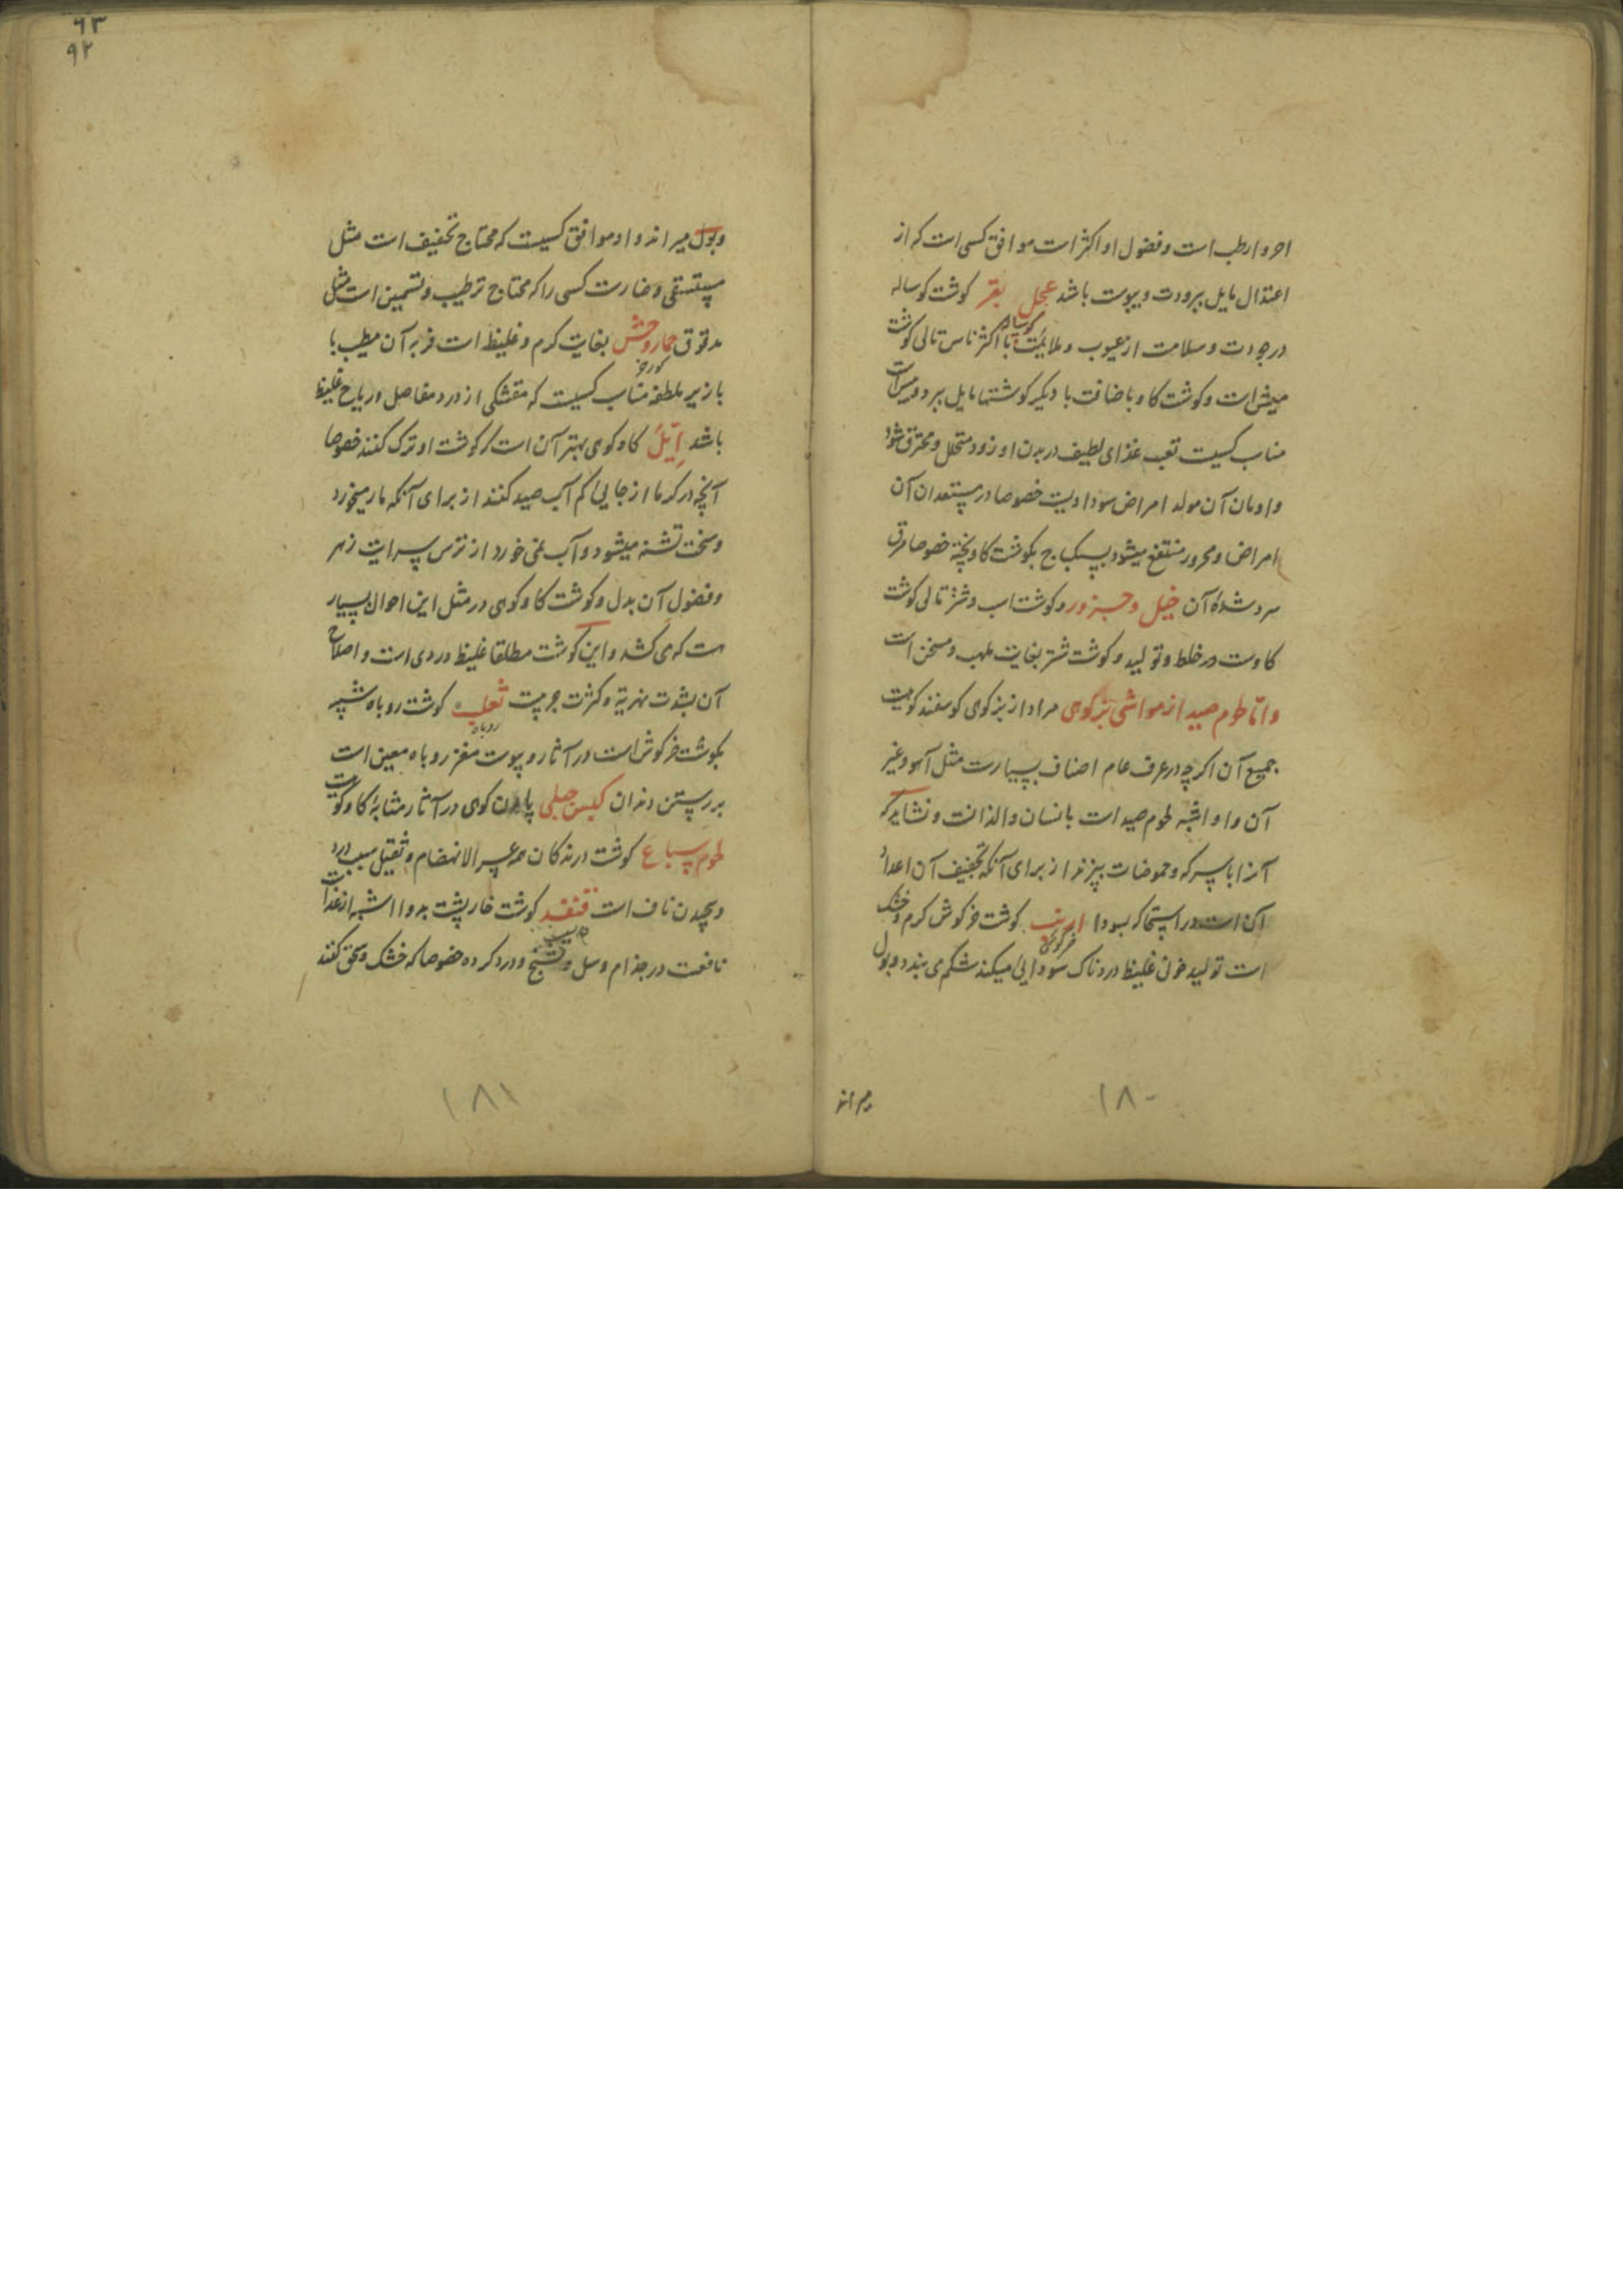 احر و ارطب است و فضول او اکثر است موافق کسی است که از
اعتدال مایل ببرودت و یبوست باشد عجل بقر کوشت کوساله
کوساله
در جودت و سلامت از عیوب و ملایمت با اکثر ناس تالی کوشت
میش است و کوشت کاو باضافت با دیکر کوشتها مایل ببرد و یبس است
مناسب کسیست تعب غذای لطیف در بدن او زود متحلل و محترق شود
و اومان آن مولد امراض سوداویست خصوصا در مستعدان آن
امراض و محرور منتفع میشود بسکباج بکوشت کاو پخته خصوصا مرق
سرد شده آن خیل و جزور و کوشت اسب و شتر تالی کوشت
کاوست در غلظ و تولید و کوشت شتر بغایت ملهب و مسخن است
و اما لحوم صید از مواشی بزکوهی مراد از بزکوی کوسفند کوهیست
جمیع آن اکرچه در عرف عام اصناف بسیارست مثل آهو و غیر
آن و او اشبه لحوم صید است بانسان و الذ انست و نشاید که
آنرا با سرکه و حموضات بپزند از برای آنکه تجفیف آن اعداد
آن است در استحاله بسودا ارنب کوشت خرکوش کرم و خشک
خرکوش
است تولید خون غلیظ درد ناک سودایی میکند شکم می بندد و بول
میراند
۱۸۰
۶۳
۹۲
و بول میراند و او موافق کسیست که محتاج تجفیف است مثل
مستسقی و ضارست کسی را که محتاج ترطیب و تسمین است مثل
مدقوق حمار وحش بغایت کرم و غلیظ است فربه آن مطیب با
کورخر
بازیر ملطفه مناسب کسیست که متشکی از درد مفاصل و ریاح غلیظ
باشد اِیَّل کاو کوی بهتر آن است که کوشت او ترک کنند خصوصا
آنچه در کرما از جایی کم آب صید کنند از برای آنکه مار میخورد
و سخت تشنه میشود و آب نمی خورد از ترس سرایت زهر
و فضول آن بدل و کوشت کاو کوهی در مثل این احوال بسیار
هست که می کشد و این کوشت مطلقا غلیظ و ردی است و اصلاح
آن بشدت تهریه و کثرت چربیست ثعلب کوشت روباه شبیه
روباه
بکوشت خرکوش است در آثار و پوست مغز روباه معین است
بر رستن دندان کبش جبلی پازن کوی در آثار مشابهٔ کاو کوهیست
لحوم سباع کوشت درندکان همه عسر الانهضام و ثقیل سبب درد
و پیچیدن ناف است قنفذ کوشت خارپشت بدوا اشبه از غذاست
نافعست در جذام و سل و تشنج و درد کرده خصوصا که خشک و سحق کنند
۱۸۱